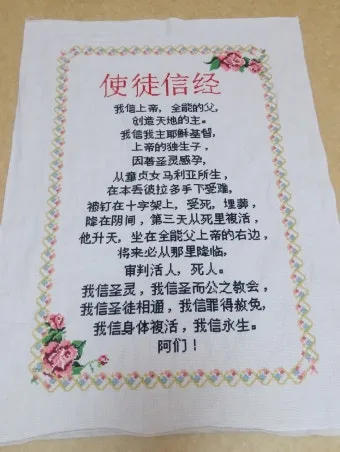 使徒信经
我信上帝，全能的父，
创造天地的主。
我信我主耶稣基督，
上帝的独生子，
因着圣灵感孕，
从童贞女马利亚所生，
在本丢彼拉多手下受难，
被钉在十字架上，受死，埋葬，
降在阴间，第三天从死里複活，
他升天，坐在全能父上帝的右边，
将来必从那里降临，
审判活人，死人。
我信圣灵，我信圣而公之教会，
我信圣徒相通，我信罪得赦免，
我信身体複活，我信永生。
阿们！